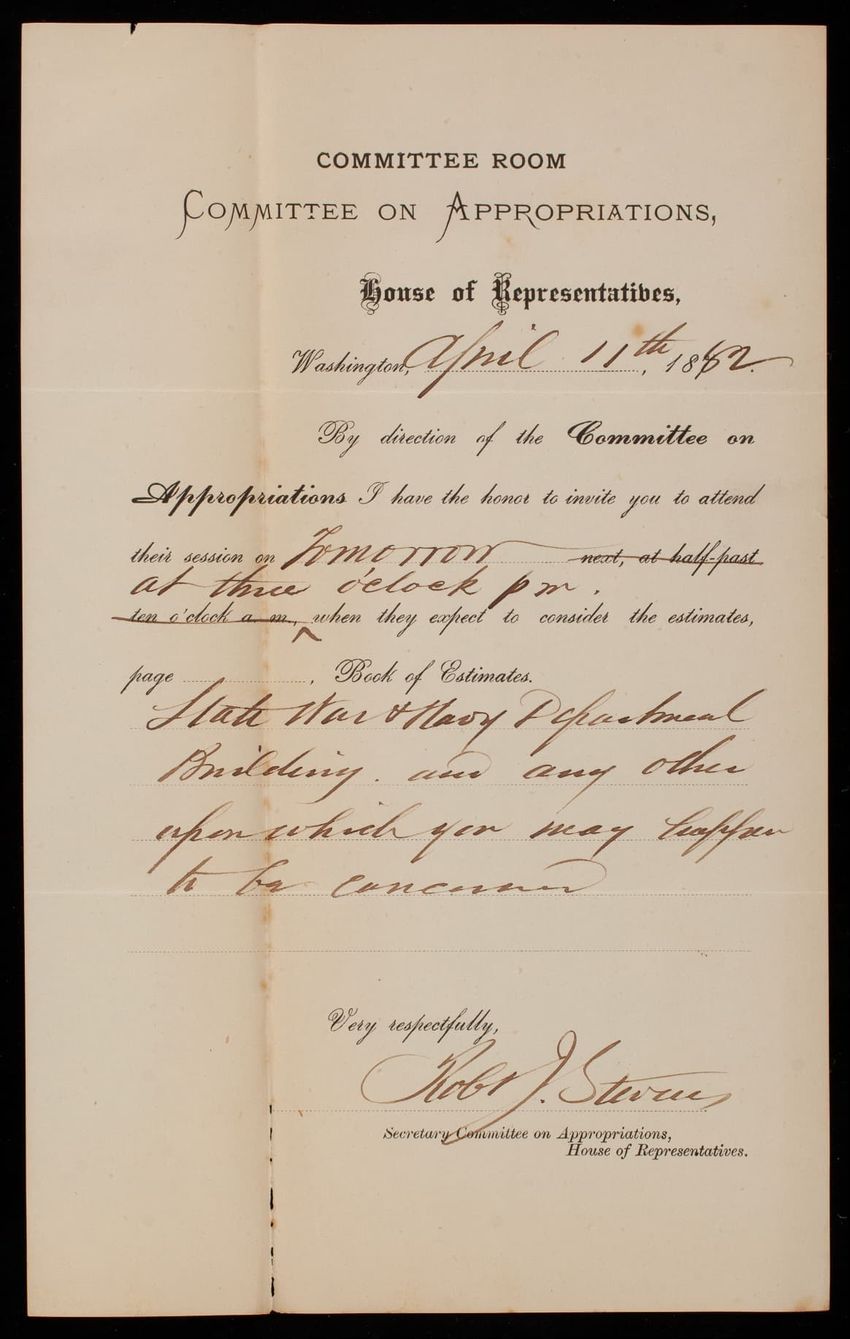 COMMITTEE ROOM
COMMITTEE ON APPROPRIATIONS,
House of Representatives,
Washington, April 11th, 1882.
By direction of the Committee on
Appropriations I have the honor to invite you to attend
their session on Tomorrow next, at half-past
at three o'clock pm.
ten o'clock a. m., when they expect to consider the estimates,
page , Book of Estimates.
State War & Navy Department
Building. and any other
upon which you may happen
to be concerned
Very respectfully,
Robt J. Stevens
Secretary Committee on Appropriations,
House of Representatives.